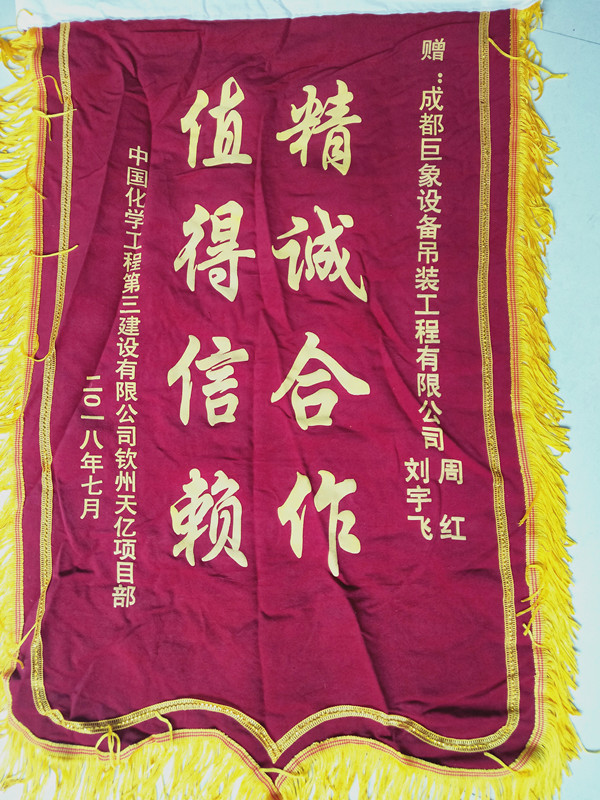 赠：成都巨象设备吊装工程有限公司 周红
刘宇飞
精诚合作
值得信赖
中国化学工程第三建设有限公司钦州天亿项目部
二〇一八年七月